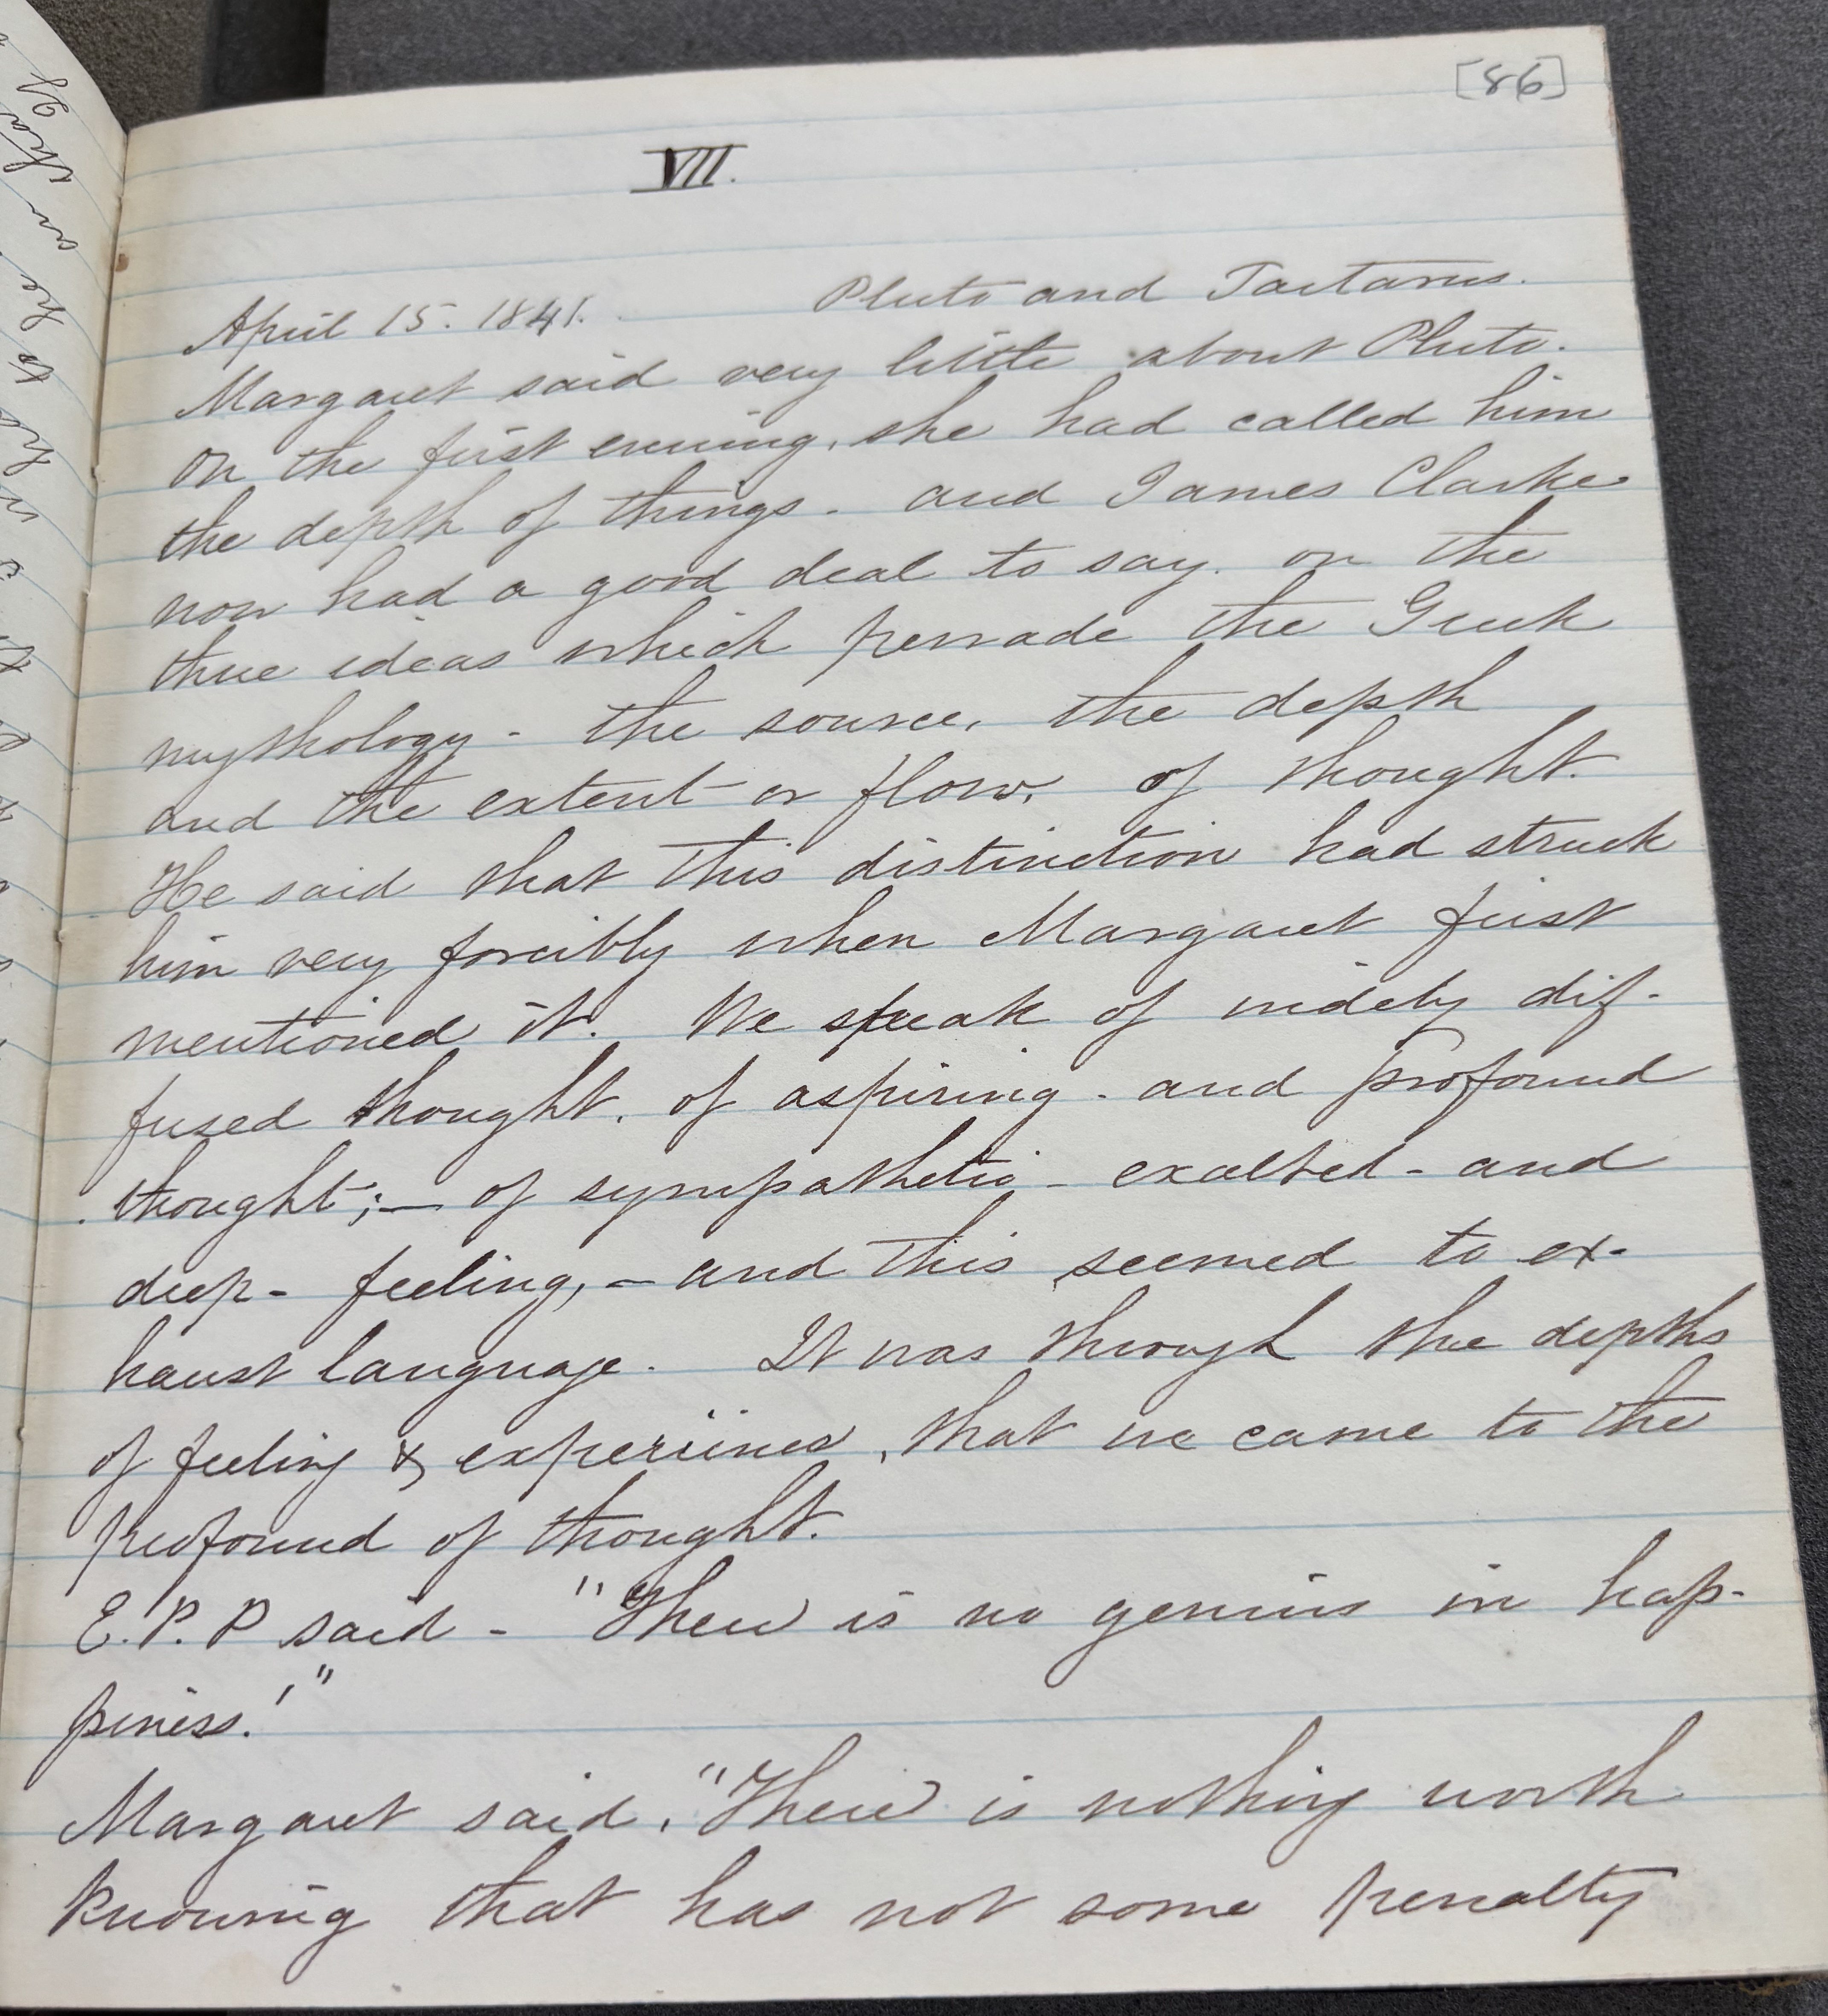 [86]
VII.
April 15. 1841. Pluto and Tartarus.
Margaret said very little about Pluto.
On the first evening, she had called him
the depth of things - and James Clarke
now had a good deal to say. on the
three ideas which pervade the Greek
mythology - the source, the depth
and the extent or flow, of thought.
He said that this distinction had struck
him very forcibly when Margaret first
mentioned it. We speak of widely dif-
fused thought, of aspiring - and profound
thought; — of sympathetic - exalted - and
deep - feeling, - and this seemed to ex-
haust language. It was through the depths
of feeling & experience, that we came to the
profound of thought.
E. P. P said - "There is no genius in hap-
piness!"
Margaret said, "There is nothing worth
knowing that has not some penalty